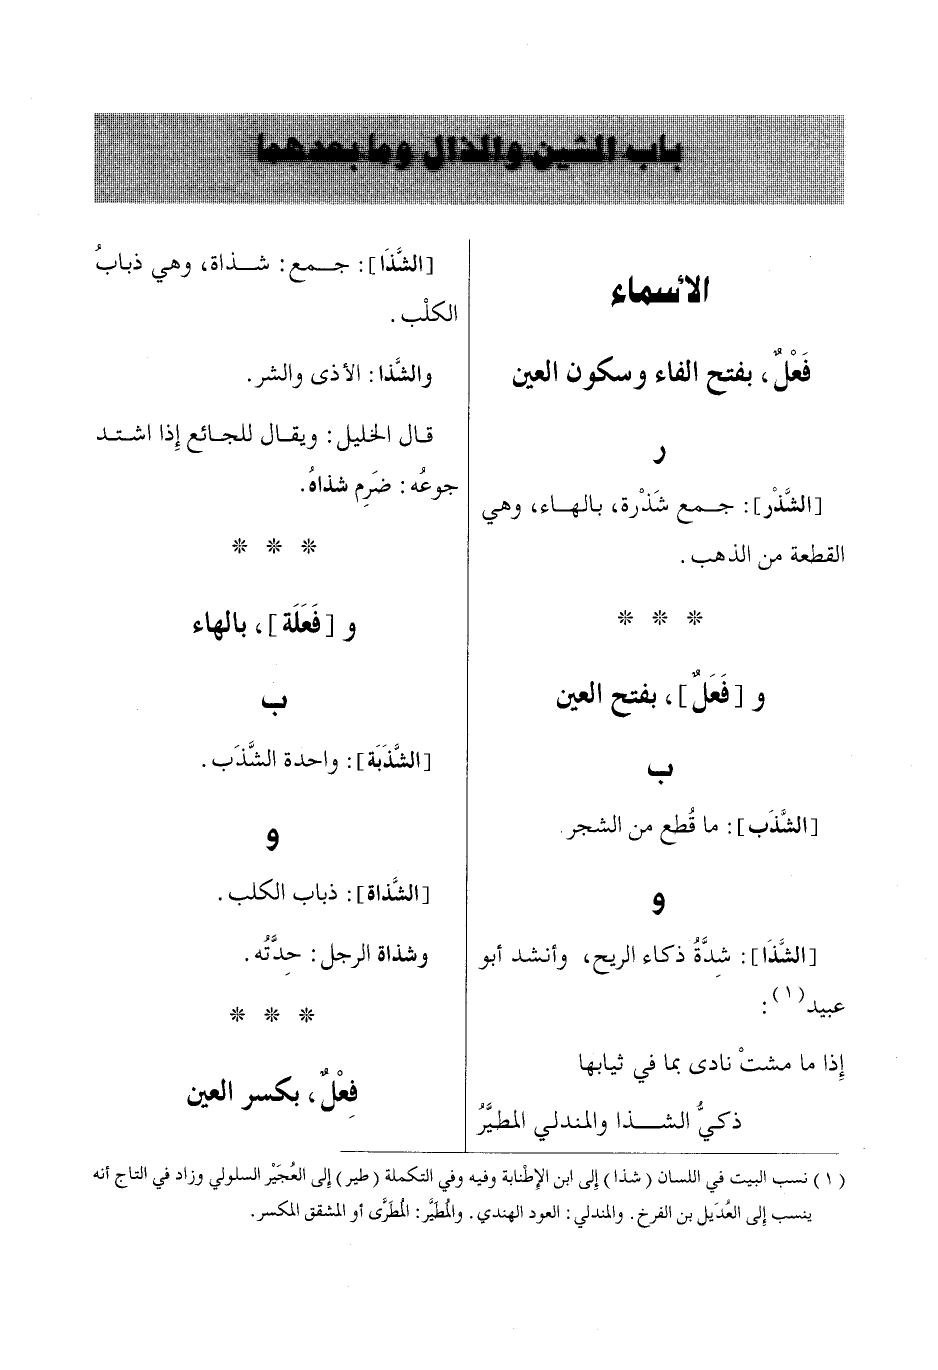 باب الشين والذال وما بعدهما
الأسماء
فَعْلٌ، بفتح الفاء وسكون العين
ر
[الشَّذْر]: جـمع شَذْرة، بالهـاء، وهي
القطعة من الذهب.
* * *
و [فَعَلٌ]، بفتح العين
ب
[الشَّذَب]: ما قُطع من الشجر.
و
[الشَّذَا]: شِدَّةُ ذكاء الريح، وأنشد أبو
عبيد(١):
إِذا ما مشتْ نادى بما في ثيابها
ذكيُّ الشـــذا والمندلي المطيَّرُ
[الشَّذَا]: جــمع: شــذاة، وهي ذبابُ
الكلْب.
والشَّذا: الأذى والشر.
قـال الخليل: ويقـال للجـائع إِذا اشـتـد
جوعُه: ضَرِم شذاهُ.
* * *
و [فَعَلَة]، بالهاء
ب
[الشَّذَبَة]: واحدة الشَّذَب.
و
[الشَّذاة]: ذباب الكلب.
وشذاة الرجل: حِدَّتُه.
* * *
فِعْلٌ، بكسر العين
(١) نسب البيت في اللسان (شذا) إلى ابن الإِطْنابة وفيه وفي التكملة (طير) إلى العُجَيْر السلولي وزاد في التاج أنه
ينسب إلى العُدَيل بن الفرخ. والمندلي: العود الهندي. والمُطَيَّر: المُطَرَّى أو المشقق المكسر.